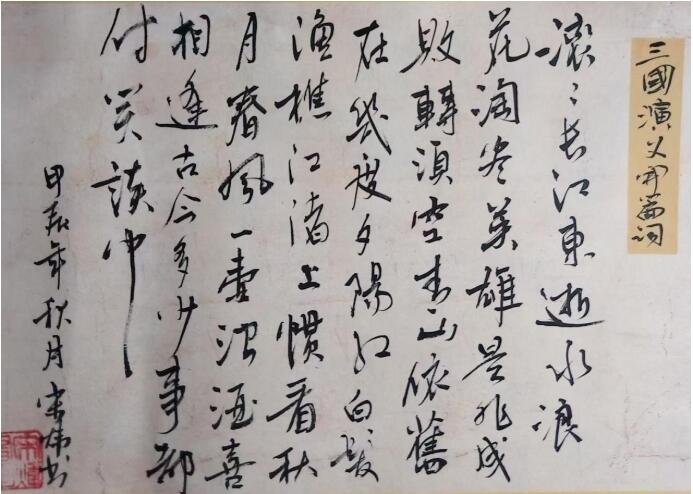 三國演义開篇词
滚滚长江東逝水浪
花淘尽英雄是非成
敗轉頭空青山依舊
在幾度夕陽红白髮
渔樵江渚上慣看秋
月春風一壶浊酒喜
相逢古今多少事都
付笑談中
甲辰年秋月宋偉书